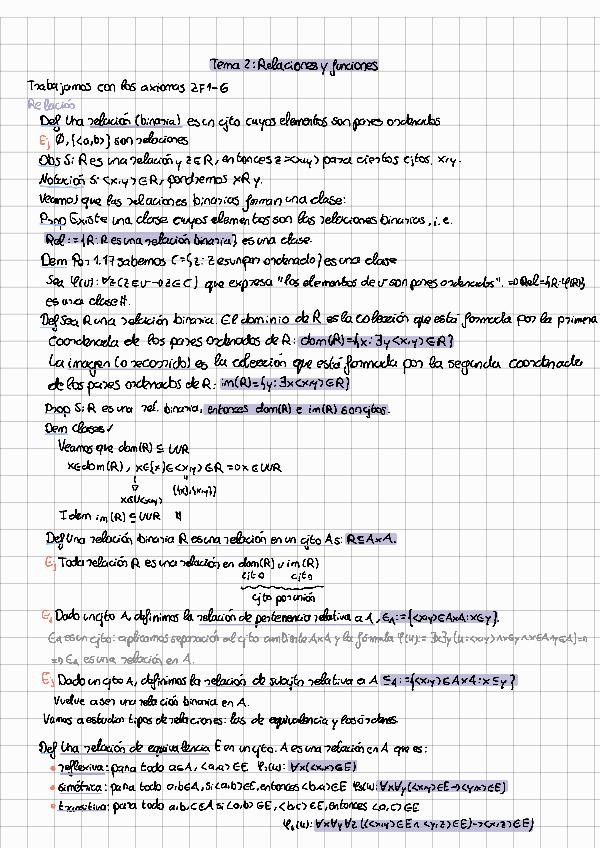 Tema 2: Relaciones y funciones
Trabajamos con los axiomas ZF1-6
Relación
Def Una relación (binaria) es un cjto cuyos elementos son pares ordenados
Ej ∅, {<a,b>} son relaciones
Obs Si R es una relación y z∈R, entonces z=<x,y> para ciertos cjtos. x,y.
Notación Si <x,y>∈R, pondremos xRy.
Veamos que las relaciones binarias forman una clase:
Prop Existe una clase cuyos elementos son las relaciones binarias, i.e.
Rel:={R: R es una relación binaria} es una clase.
Dem Por 1.17 sabemos C={z: z es un par ordenado} es una clase
Sea φ(v): ∀z(z∈v→z∈C) que expresa "los elementos de v son pares ordenados". ⇒ Rel={R: φ(R)}
es una clase #.
Def Sea R una relación binaria. El dominio de R es la colección que está formada por la primera
coordenada de los pares ordenados de R: dom(R)={x: ∃y <x,y>∈R}
La imagen (o recorrido) es la colección que está formada por la segunda coordenada
de los pares ordenados de R: im(R)={y: ∃x<x,y>∈R}
Prop Si R es una rel. binaria, entonces dom(R) e im(R) son cjtos.
Dem Clases ✓
Veamos que dom(R) ⊆ UUR
x∈dom(R), x∈{x}∈<x,y>∈R ⇒ x∈UUR
x∈U<x,y> {{x},{x,y}}
Idem im(R) ⊆ UUR
Def Una relación binaria R es una relación en un cjto A si: R⊆A×A.
Ej Toda relación R es una relación en dom(R) ∪ im(R)
cjto cjto
cjto por unión
Ej Dado un cjto A, definimos la relación de pertenencia relativa a A, ∈A:={<x,y>∈A×A: x∈y}.
∈A es un cjto: aplicamos separación al cjto ambiente A×A y la fórmula φ(u):= ∃x∃y(u=<x,y>∧x∈y∧x∈A∧y∈A) ⇒
⇒ ∈A es una relación en A.
Ej Dado un cjto A, definimos la relación de subcjto relativa a A ⊆A:={<x,y>∈A×A: x⊆y}
Vuelve a ser una relación binaria en A.
Vamos a estudiar tipos de relaciones: las de equivalencia y los órdenes
Def Una relación de equivalencia E en un cjto. A es una relación en A que es:
• reflexiva: para todo a∈A, <a,a>∈E φ1(u): ∀x(<x,x>∈E)
• simétrica: para todo a,b∈A, si <a,b>∈E, entonces <b,a>∈E φ2(u): ∀x∀y(<x,y>∈E→<y,x>∈E)
• transitiva: para todo a,b,c∈A si <a,b>∈E, <b,c>∈E, entonces <a,c>∈E
∀x∀y∀z((<x,y>∈E∧<y,z>∈E)→<x,z>∈E)